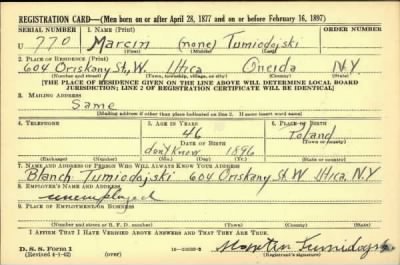 REGISTRATION CARD—(Men born on or after April 28, 1877 and on or before February 16, 1897)
SERIAL NUMBER 1. NAME (Print) ORDER NUMBER
U 770 Marcin (none) Tumiodojski
(First) (Middle) (Last)
2. PLACE OF RESIDENCE (Print)
604 Oriskany St, W. Utica Oneida N.Y.
(Number and street) (Town, township, village, or city) (County) (State)
[THE PLACE OF RESIDENCE GIVEN ON THE LINE ABOVE WILL DETERMINE LOCAL BOARD
JURISDICTION; LINE 2 OF REGISTRATION CERTIFICATE WILL BE IDENTICAL]
3. MAILING ADDRESS
Same
[Mailing address if other than place indicated on line 2. If same insert word same]
4. TELEPHONE 5. AGE IN YEARS 6. PLACE OF BIRTH
46 Poland
DATE OF BIRTH (Town or county)
don't know 1896
(Exchange) (Number) (Mo.) (Day) (Yr.) (State or country)
7. NAME AND ADDRESS OF PERSON WHO WILL ALWAYS KNOW YOUR ADDRESS
Blanch Tumiodojski 604 Oriskany St. W. Utica, N.Y
8. EMPLOYER'S NAME AND ADDRESS
unemployed
9. PLACE OF EMPLOYMENT OR BUSINESS
(Number and street or R. F. D. number) (Town) (County) (State)
I AFFIRM THAT I HAVE VERIFIED ABOVE ANSWERS AND THAT THEY ARE TRUE.
D. S. S. Form 1
(Revised 4-1-42) (over)
(Registrant's signature)